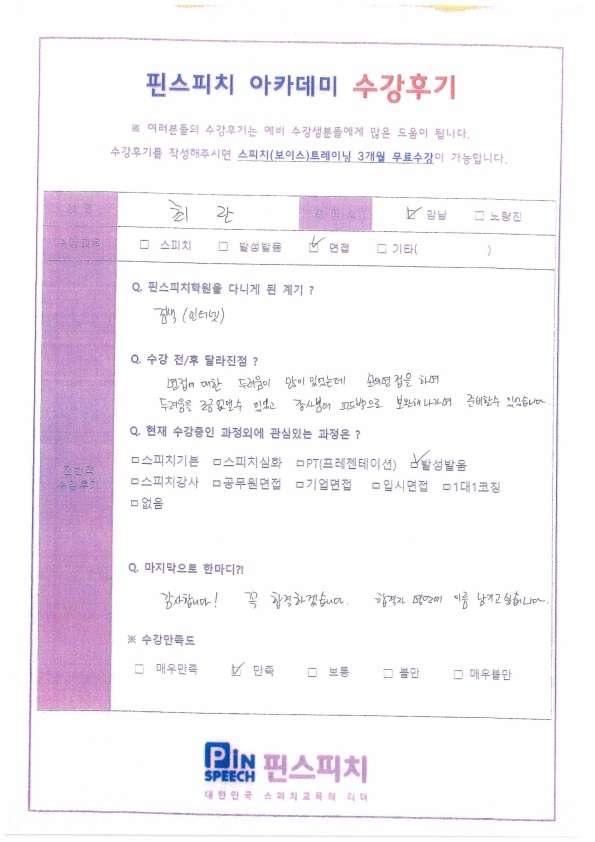 핀스피치 아카데미 수강후기
※ 여러분들의 수강후기는 예비 수강생분들에게 많은 도움이 됩니다.
수강후기를 작성해주시면 스피치(보이스)트레이닝 3개월 무료수강이 가능합니다.
성 명 최 란 ☑ 강남 □ 노량진
수강과목 □ 스피치 □ 발성발음 ☑ 면접 □ 기타( )
Q. 핀스피치학원을 다니게 된 계기 ?
검색 (인터넷)
Q. 수강 전/후 달라진점 ?
면접에 대한 두려움이 많이 있었는데 모의면접을 하며
두려움을 조금 없앨수 있었고 강사님의 피드백으로 보완해 나가며 준비할수 있었습니다.
Q. 현재 수강중인 과정외에 관심있는 과정은 ?
□스피치기본 □스피치심화 □PT(프레젠테이션) ☑발성발음
□스피치강사 □공무원면접 □기업면접 □입시면접 □1대1코칭
□없음
전반적
수강후기
Q. 마지막으로 한마디?!
감사합니다! 꼭 합격하겠습니다. 합격자 명단에 이름 남기고 싶습니다.
※ 수강만족도
□ 매우만족 ☑ 만족 □ 보통 □ 불만 □ 매우불만
PIN SPEECH 핀스피치
대한민국 스피치교육의 리더